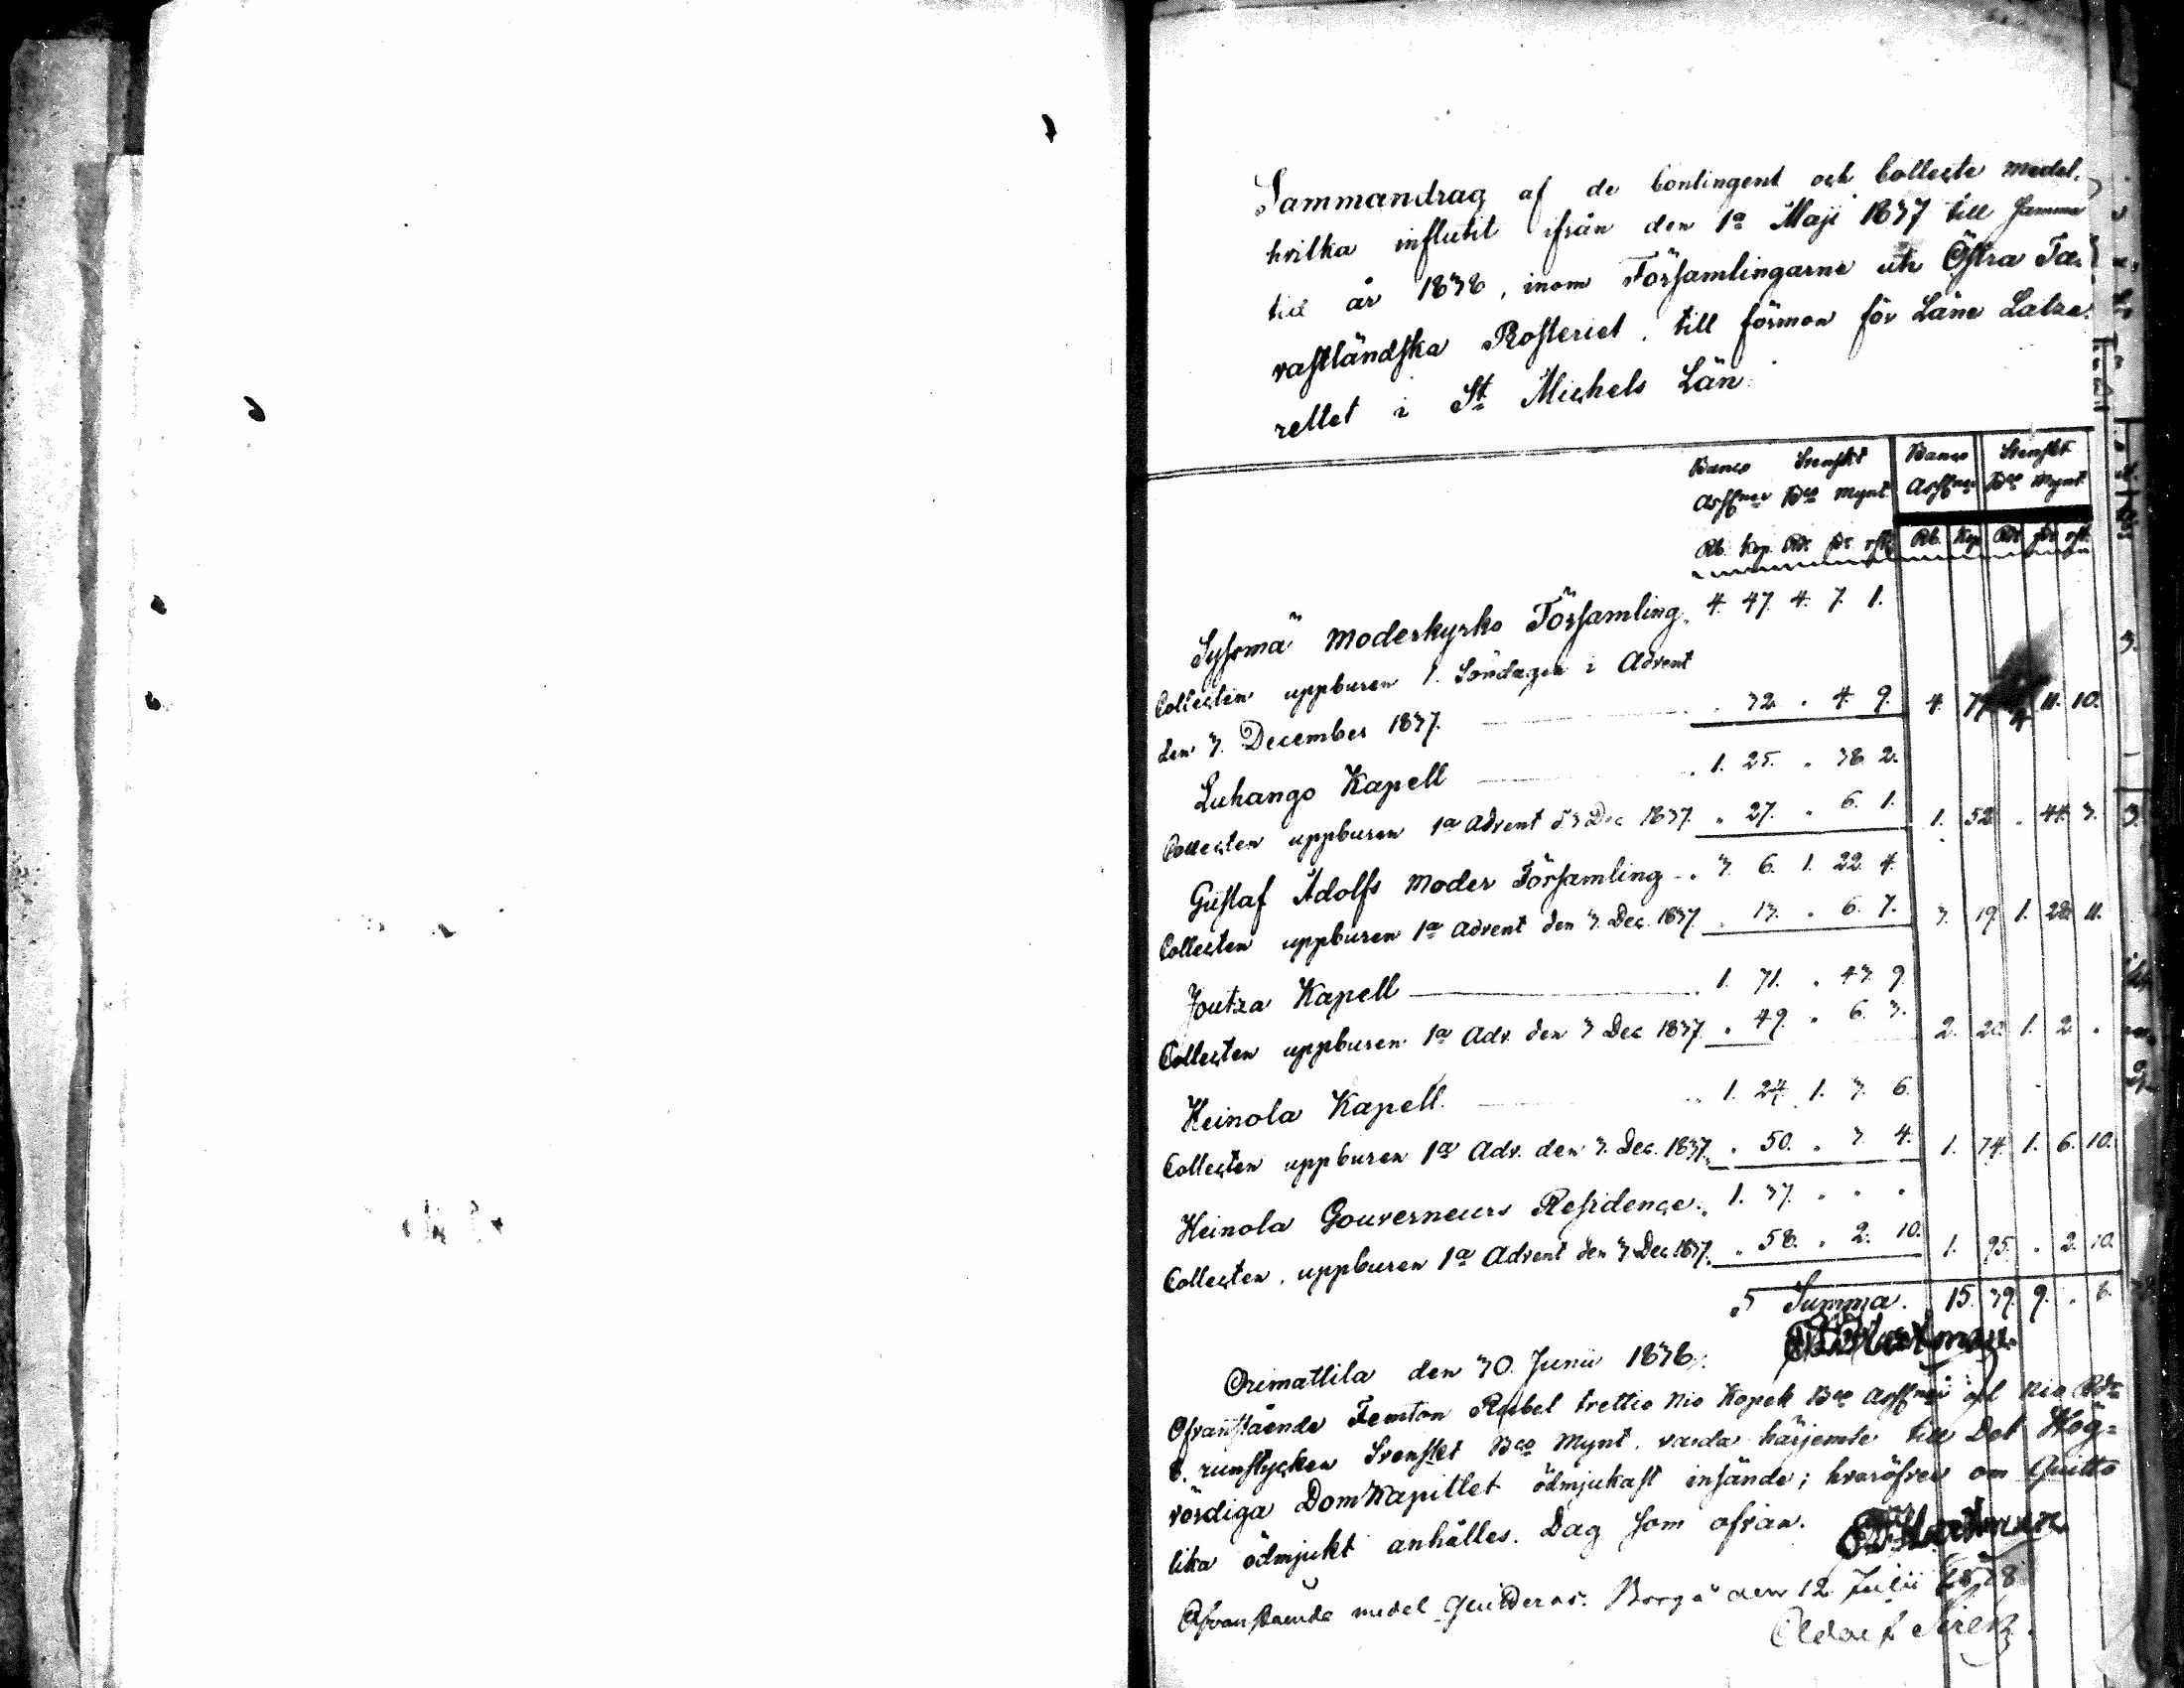 Sammandrag af de Contingent och Collecte medel,
hvilka influtit ifrån den 1a Maji 1837 till samma
tid år 1838, inom Församlingarne uti Östra Ta-
vastländska Prosteriet, till förmon för Läns Laza-
rettet i St Michels Län.
Banco Svenskt Banco Svenskt
Assgner Bco Mynt. Assgner Bco Mynt
Rb. Kop. Rdr sk rst. Rb. Kop Rdr sk rst.
Sysmä Moderkyrko Församling. 4. 47. 4. 7. 1.
Collecten uppburen 1. Söndagen i Advent
den 3. December 1837. " 32. " 4. 9. 4. 79. 4. 11. 10.
Luhango Kapell 1. 25. " 38. 2.
Collecten uppburen 1a Advent d. 3 Dec 1837. " 27. " 6. 1. 1. 52. " 44. 3.
Gustaf Adolfs Moder Församling 3. 6. 1. 22. 4.
Collecten uppburen 1a Advent den 3. Dec. 1837 " 13. " 6. 7. 3. 19. 1. 28. 11.
Joutza Kapell 1. 71. " 43. 9.
Collecten uppburen 1a Adv. den 3 Dec 1837 " 49. " 6. 3. 2. 20. 1. 2. "
Heinola Kapell. 1. 24. 1. 3. 6.
Collecten uppburen 1a Adv. den 3. Dec. 1837. " 50. " 3. 4. 1. 74. 1. 6. 10.
Heinola Gouverneurs Residence. 1. 37. " " "
Collecten uppburen 1a Advent den 3 Dec 1837. " 58. " 2. 10. 1. 95. " 2. 10.
Summa. 15. 39. 9. " 8.
Orimattila den 30. Junii 1838.
Ofvanstående Femton Rubel trettio nio Kopek Bco Assgner och nio Rdr
8. runstycken Svenskt Bco Mynt. varda härjemte till Det Hög-
vördiga DomKapitlet ödmjukast insände; hvaröfver om Quitto
lika ödmjukt anhålles. Dag som ofvan.
Ofvanstående medel quitteras. Borgå den 12 Julii 1838